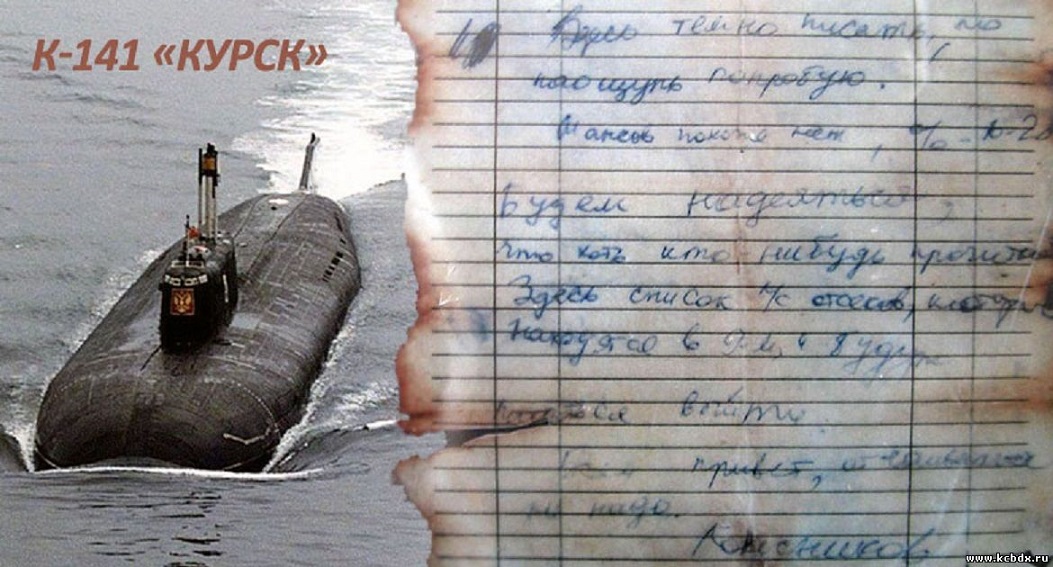 К-141 «КУРСК»
Здесь темно писать, но
наощупь попробую.
Шансов похоже нет, % - 10-20
Будем надеяться,
что хоть кто нибудь прочитает
Здесь список л/с отсеков, которые
находятся в 9-м и будут
выйти.
привет, отчаиваться
не надо.
Колесников
www.kcbdx.ru